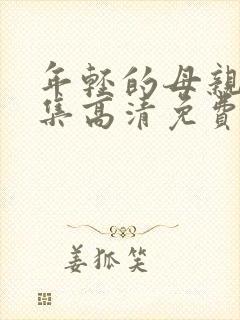 年轻的母亲
集高清免费
姜狐笑